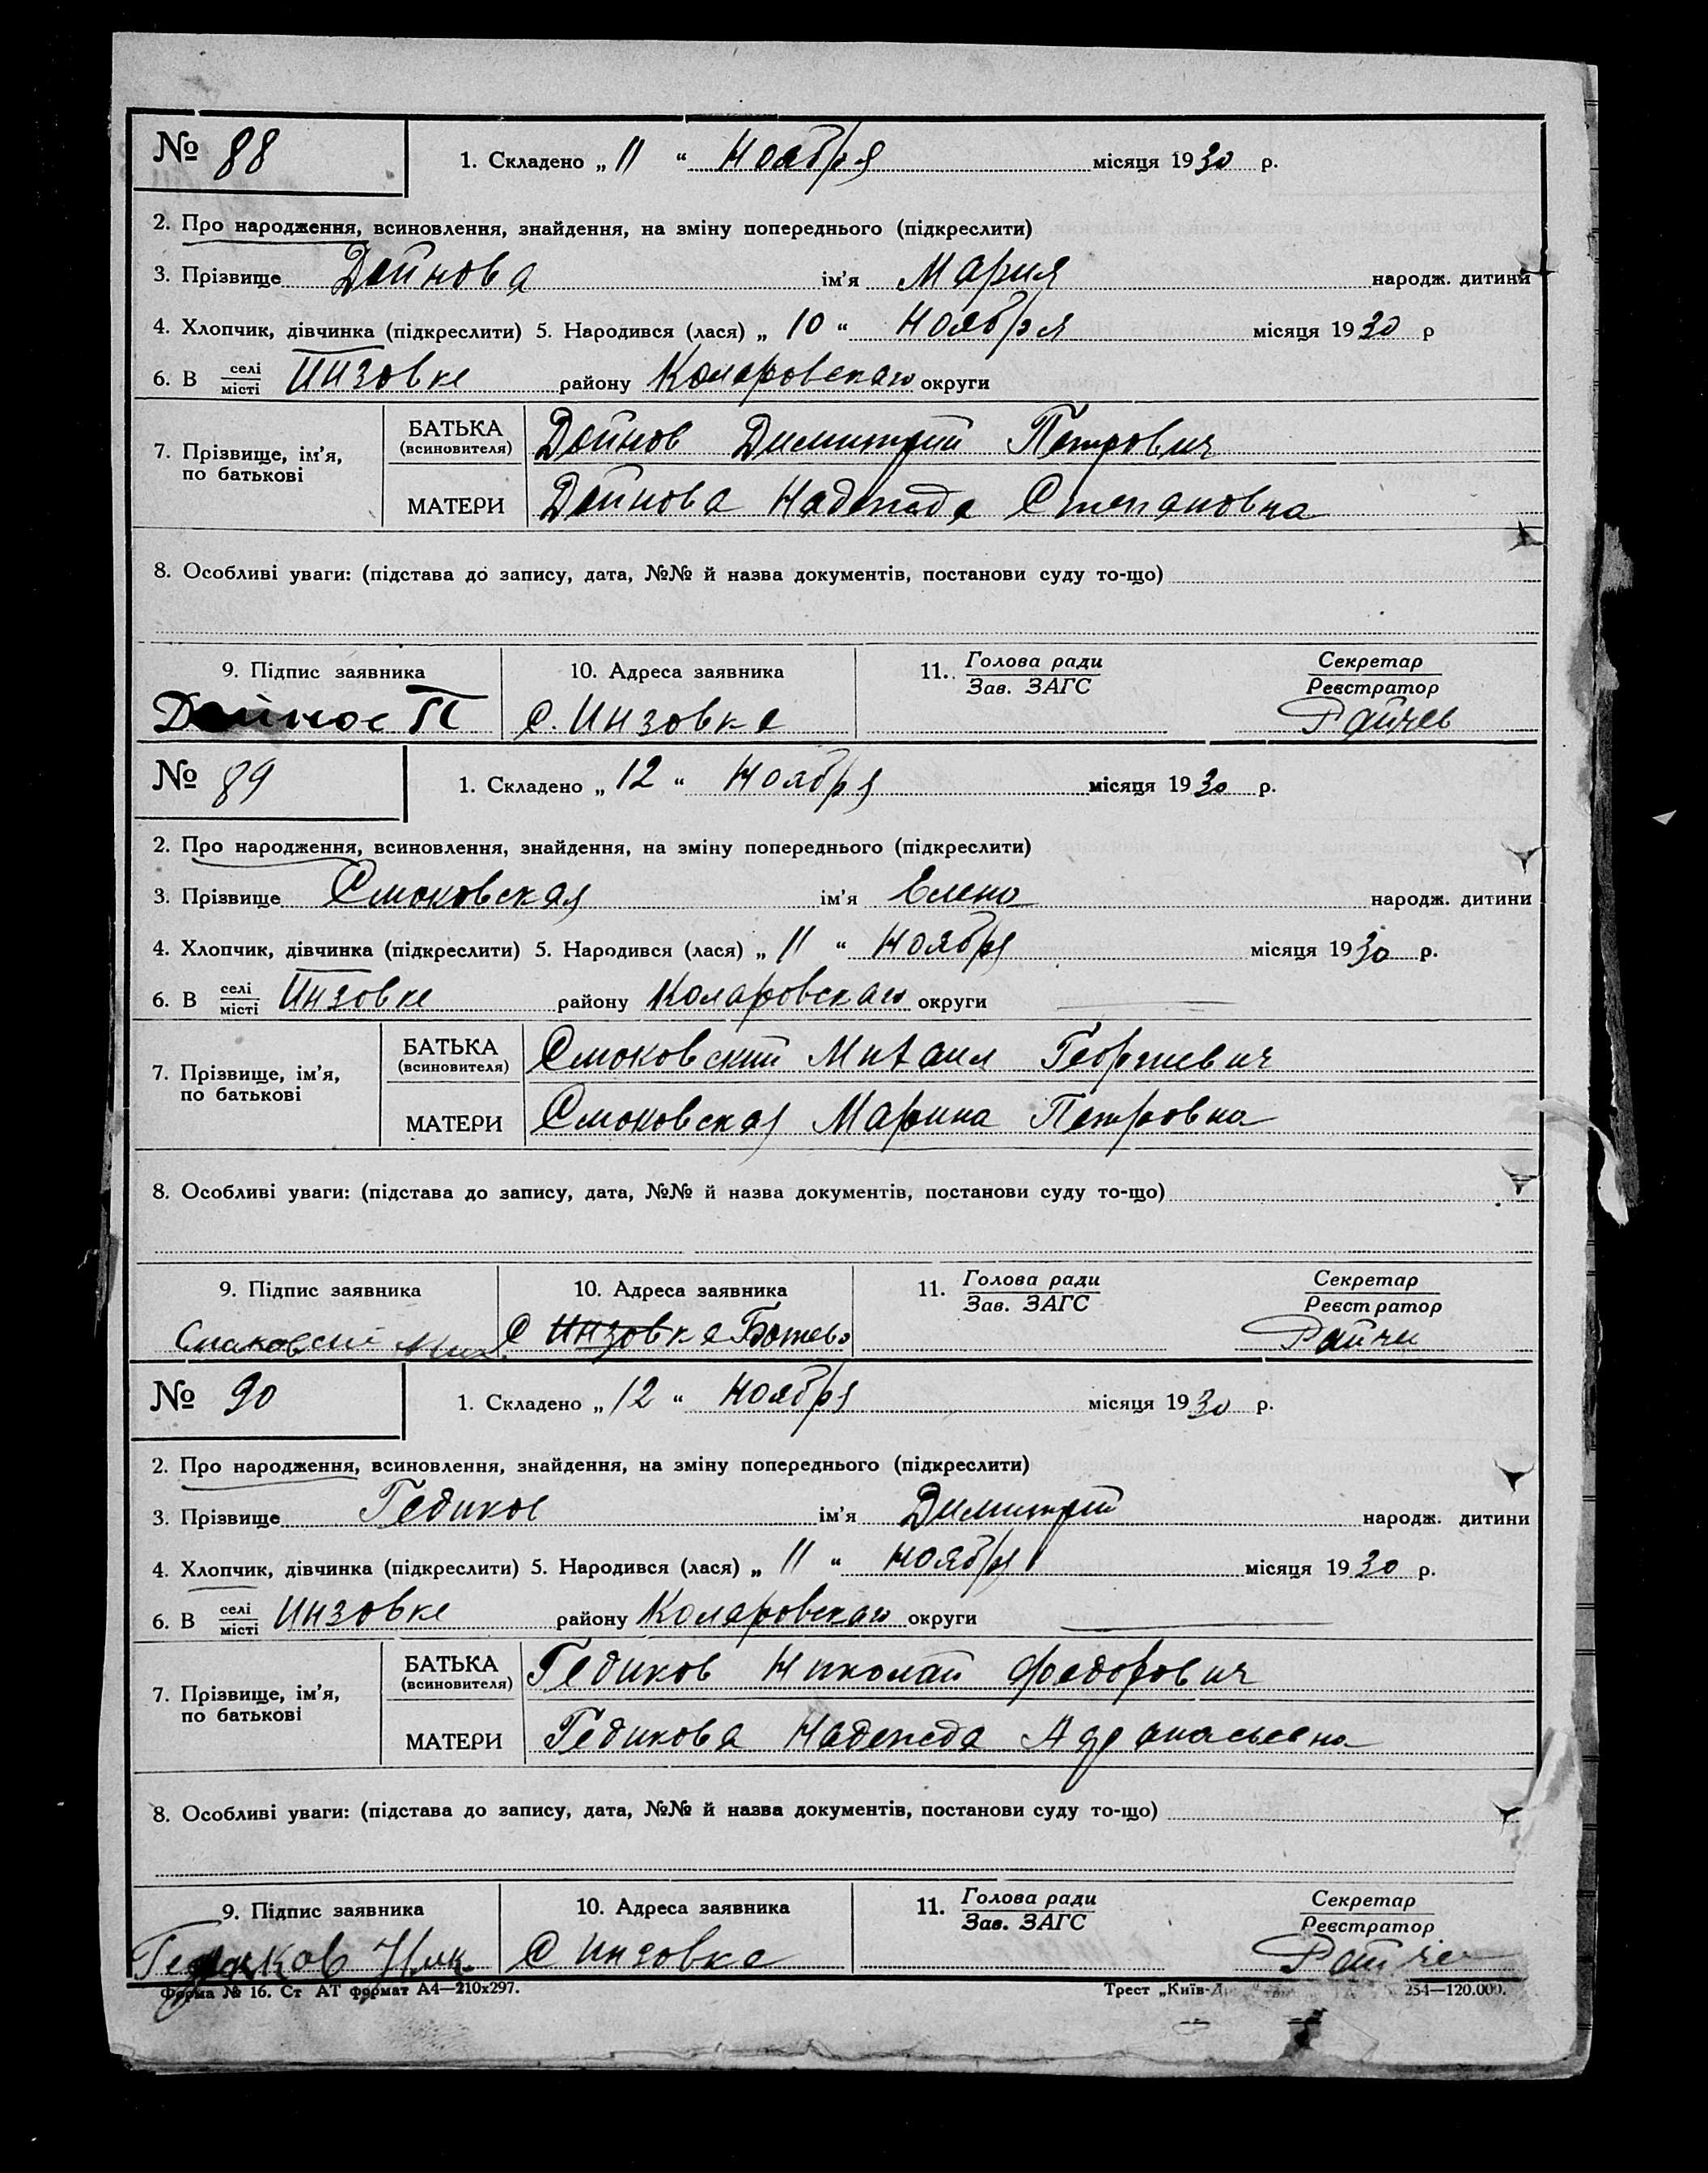 № 88
1. Складено „ 11 “ Ноября місяця 1930 р.
2. Про народження, всиновлення, знайдення, на зміну попереднього (підкреслити)
3. Прізвище Дойнова ім'я Мария народж. дитини
4. Хлопчик, дівчинка (підкреслити) 5. Народився (лася) „ 10 “ Ноября місяця 1930 р
6. В селі місті Инзовке району Коларовскаго округи
7. Прізвище, ім'я, по батькові
БАТЬКА (всиновителя) Дойнов Димитрий Петрович
МАТЕРИ Дойнова Надежда Степановна
8. Особливі уваги: (підстава до запису, дата, №№ й назва документів, постанови суду то-що)
9. Підпис заявника 10. Адреса заявника 11. Голова ради Зав. ЗАГС Секретар Реєстратор
Дойнов П с. Инзовка Райчев
№ 89
1. Складено „ 12 “ Ноября місяця 1930 р.
2. Про народження, всиновлення, знайдення, на зміну попереднього (підкреслити)
3. Прізвище Смоковская ім'я Елена народж. дитини
4. Хлопчик, дівчинка (підкреслити) 5. Народився (лася) „ 11 “ Ноября місяця 1930 р.
6. В селі місті Инзовке району Коларовскаго округи
7. Прізвище, ім'я, по батькові
БАТЬКА (всиновителя) Смоковский Михаил Георгиевич
МАТЕРИ Смоковская Марина Петровна
8. Особливі уваги: (підстава до запису, дата, №№ й назва документів, постанови суду то-що)
9. Підпис заявника 10. Адреса заявника 11. Голова ради Зав. ЗАГС Секретар Реєстратор
С Инзовка Ботево
№ 90
1. Складено „ 12 “ Ноября місяця 1930 р.
2. Про народження, всиновлення, знайдення, на зміну попереднього (підкреслити)
3. Прізвище Гедиков ім'я Димитрий народж. дитини
4. Хлопчик, дівчинка (підкреслити) 5. Народився (лася) „ 11 “ Ноября місяця 1930 р.
6. В селі місті Инзовке району Коларовскаго округи
7. Прізвище, ім'я, по батькові
БАТЬКА (всиновителя) Гедиков Николай Федорович
МАТЕРИ Гедикова Надежда Афанасьевна
8. Особливі уваги: (підстава до запису, дата, №№ й назва документів, постанови суду то-що)
9. Підпис заявника 10. Адреса заявника 11. Голова ради Зав. ЗАГС Секретар Реєстратор
Гедиков Ник. С Инзовка
Форма № 16. Ст АТ формат А4—210х297. Трест „Київ- 254—120.000.